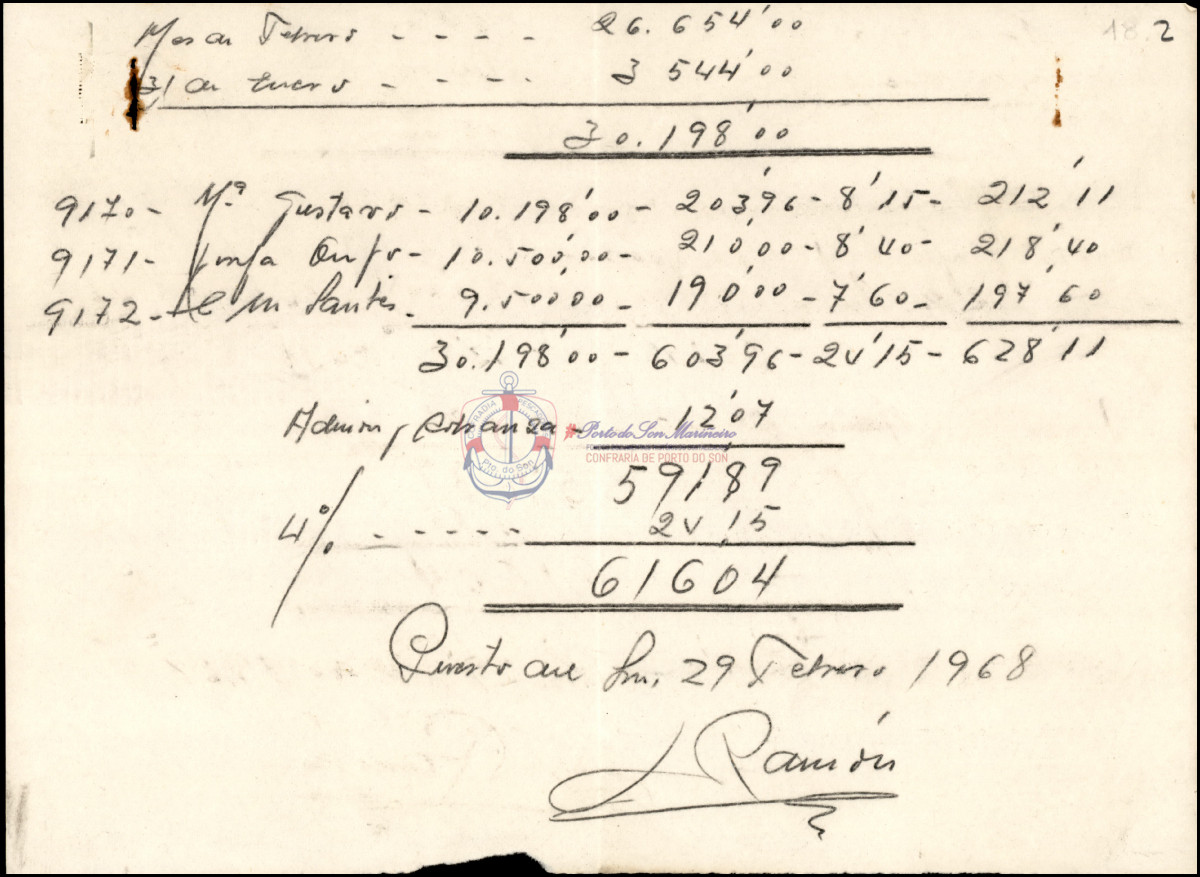 18.2
Mes de Febrero - - - - 26.654'00
31 de Enero - - - - 3 544'00
30.198'00
9170- Mª Gustavo - 10.198'00 - 203'96 - 8'15 - 212'11
9171- - 10.500'00 - 210'00 - 8'40 - 218'40
9172- - 9.500'00 - 190'00 - 7'60 - 197'60
30.198'00 - 603'96 - 24'15 - 628'11
Admon, cobranza - 12'07
CONFRADIA PESCADORES
Pto. do Son
Porto do Son Marineiro
CONFRARÍA DE PORTO DO SON
591'89
4% - - - - - 24'15
616'04
Puerto del Son, 29 Febrero 1968
Ramón